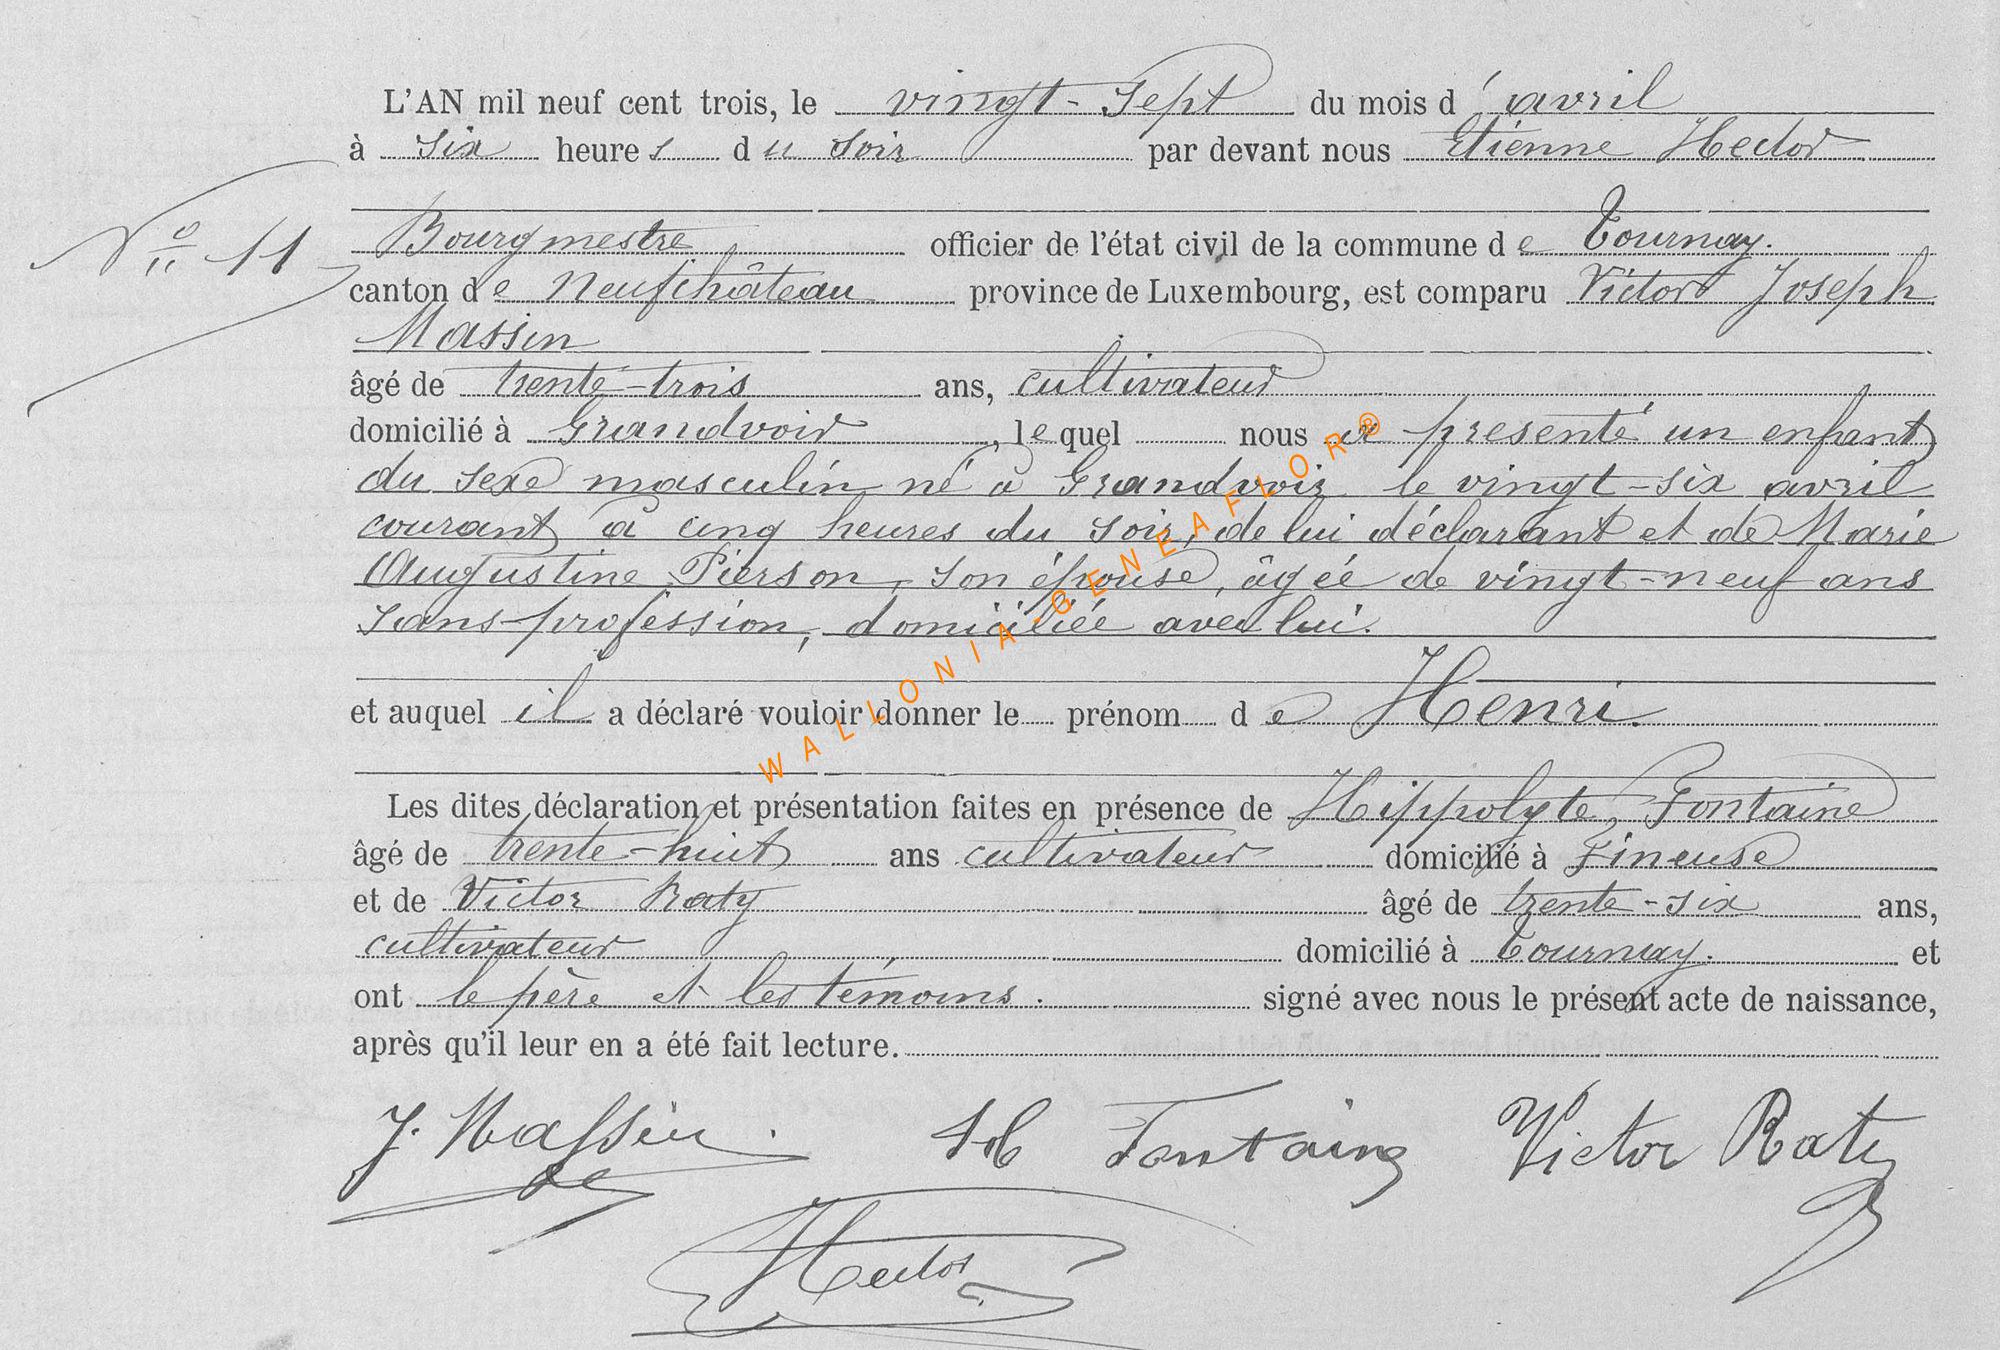 L'AN mil neuf cent trois, le vingt-sept du mois d'avril
à six heures du soir par devant nous Etienne Hector
N° 11
Bourgmestre officier de l'état civil de la commune de Tournay.
canton de Neufchâteau province de Luxembourg, est comparu Victor Joseph
Massin
âgé de trente-trois ans, cultivateur
domicilié à Grandvoir, lequel nous a présenté un enfant
du sexe masculin né à Grandvoir le vingt-six avril
courant à cinq heures du soir, de lui déclarant et de Marie
Augustine Pierson, son épouse, âgée de vingt-neuf ans
sans profession, domiciliée avec lui.
et auquel il a déclaré vouloir donner le prénom de Henri.
Les dites déclaration et présentation faites en présence de Hippolyte Fontaine
âgé de trente-huit ans cultivateur domicilié à Fineuse
et de Victor Raty âgé de trente-six ans,
cultivateur domicilié à Tournay. et
ont le père et les témoins. signé avec nous le présent acte de naissance,
après qu'il leur en a été fait lecture.
J. Massin. H Fontaine Victor Raty
Hector
WALLONIA-GENEAFLOR®